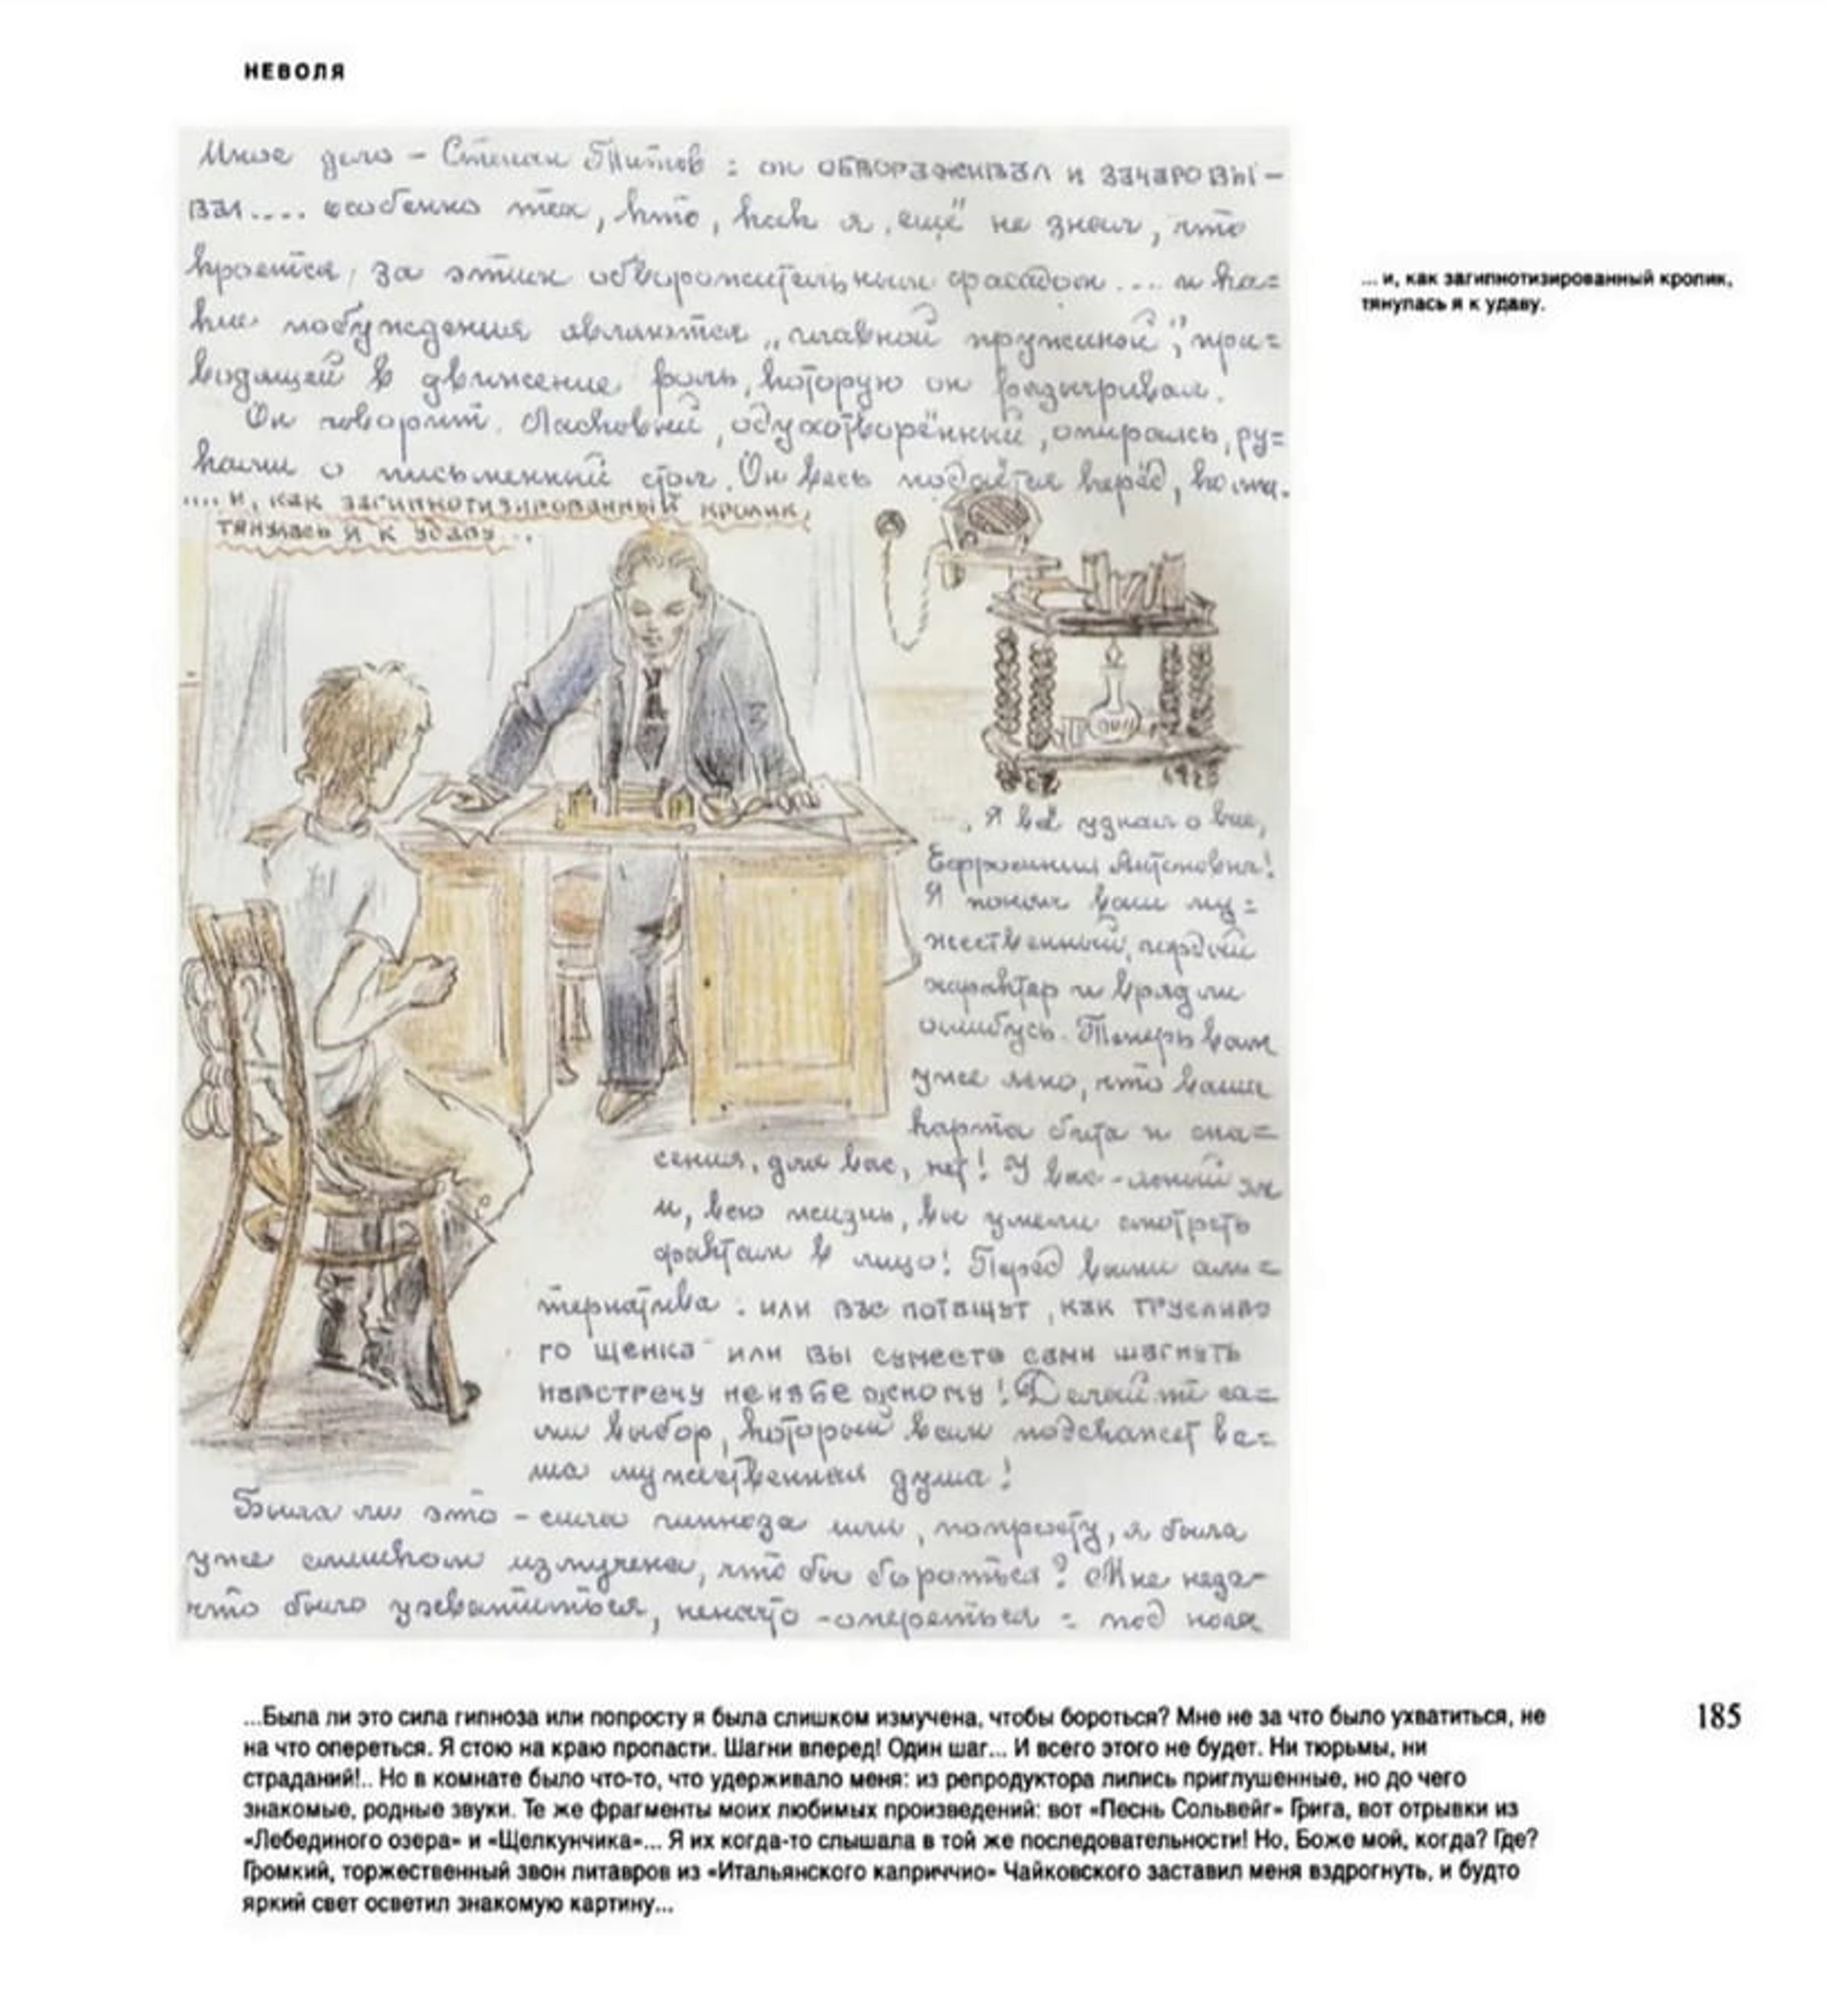 НЕВОЛЯ
Иное дело – Степан Титов : он ОБВОРАЖИВАЛ и ЗАЧАРОВЫ-
ВАЛ.... особенно тех, кто, как я, ещё не знал, что
кроется, за этим обворожительным фасадом.... и ка=
кие побуждения являются „главной пружиной", при=
водящей в движение роль, которую он разыгрывал.
Он говорит. Ласковый, одухотворённый, опираясь, ру=
ками о письменный стол. Он весь подаётся перёд, ко мне.
.... и, как загипнотизированный кролик,
тянулась я к удаву...
... и, как загипнотизированный кролик,
тянулась я к удаву.
Я всё узнал о вас,
Ефросиния Антоновна!
Я понял ваш му=
жественный, гордый
характер и врядли
ошибусь. Теперь вам
уже ясно, что ваша
карта бита и спа=
сения, для вас, нет! У вас – ясный ум
и, всю жизнь, вы умели смотреть
фактам в лицо! Перед вами аль=
тернатива : или вас потащут, как трусливо
го щенка – или вы сумеете сами шагнуть
навстречу неизбежному! Делайте са=
ми выбор, который вам подскажет ва=
ша мужественная душа!
Была ли это – сила гипноза или, попросту, я была
уже слишком измучена, что бы бороться? Мне неза-
что было ухватиться, неначто – опереться : под нога
...Была ли это сила гипноза или попросту я была слишком измучена, чтобы бороться? Мне не за что было ухватиться, не
на что опереться. Я стою на краю пропасти. Шагни вперед! Один шаг... И всего этого не будет. Ни тюрьмы, ни
страданий!.. Но в комнате было что-то, что удерживало меня: из репродуктора лились приглушенные, но до чего
знакомые, родные звуки. Те же фрагменты моих любимых произведений: вот «Песнь Сольвейг» Грига, вот отрывки из
«Лебединого озера» и «Щелкунчика»... Я их когда-то слышала в той же последовательности! Но, Боже мой, когда? Где?
Громкий, торжественный звон литавров из «Итальянского каприччио» Чайковского заставил меня вздрогнуть, и будто
яркий свет осветил знакомую картину...
185